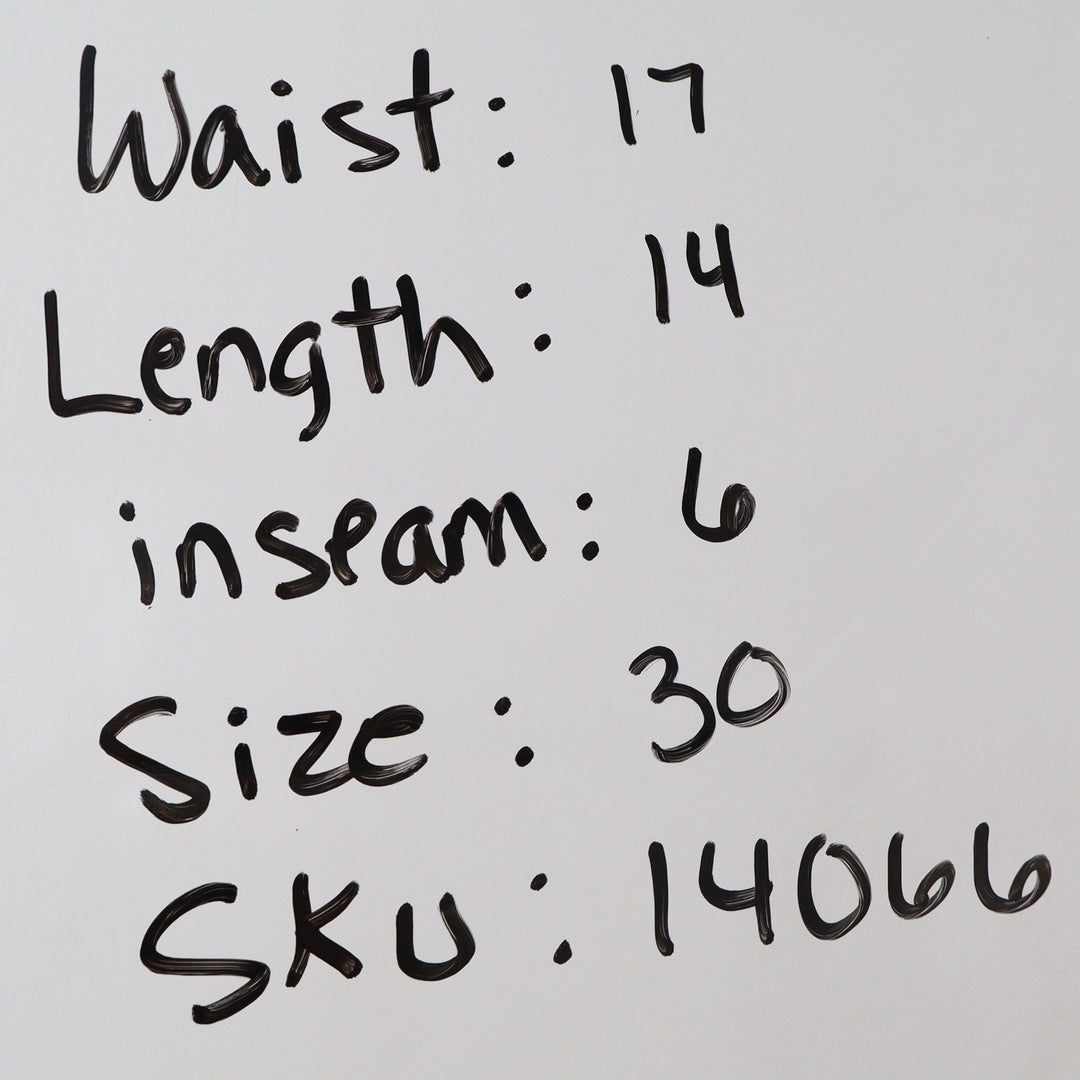 Waist: 17
Length: 14
inseam: 6
Size: 30
SKU: 14066